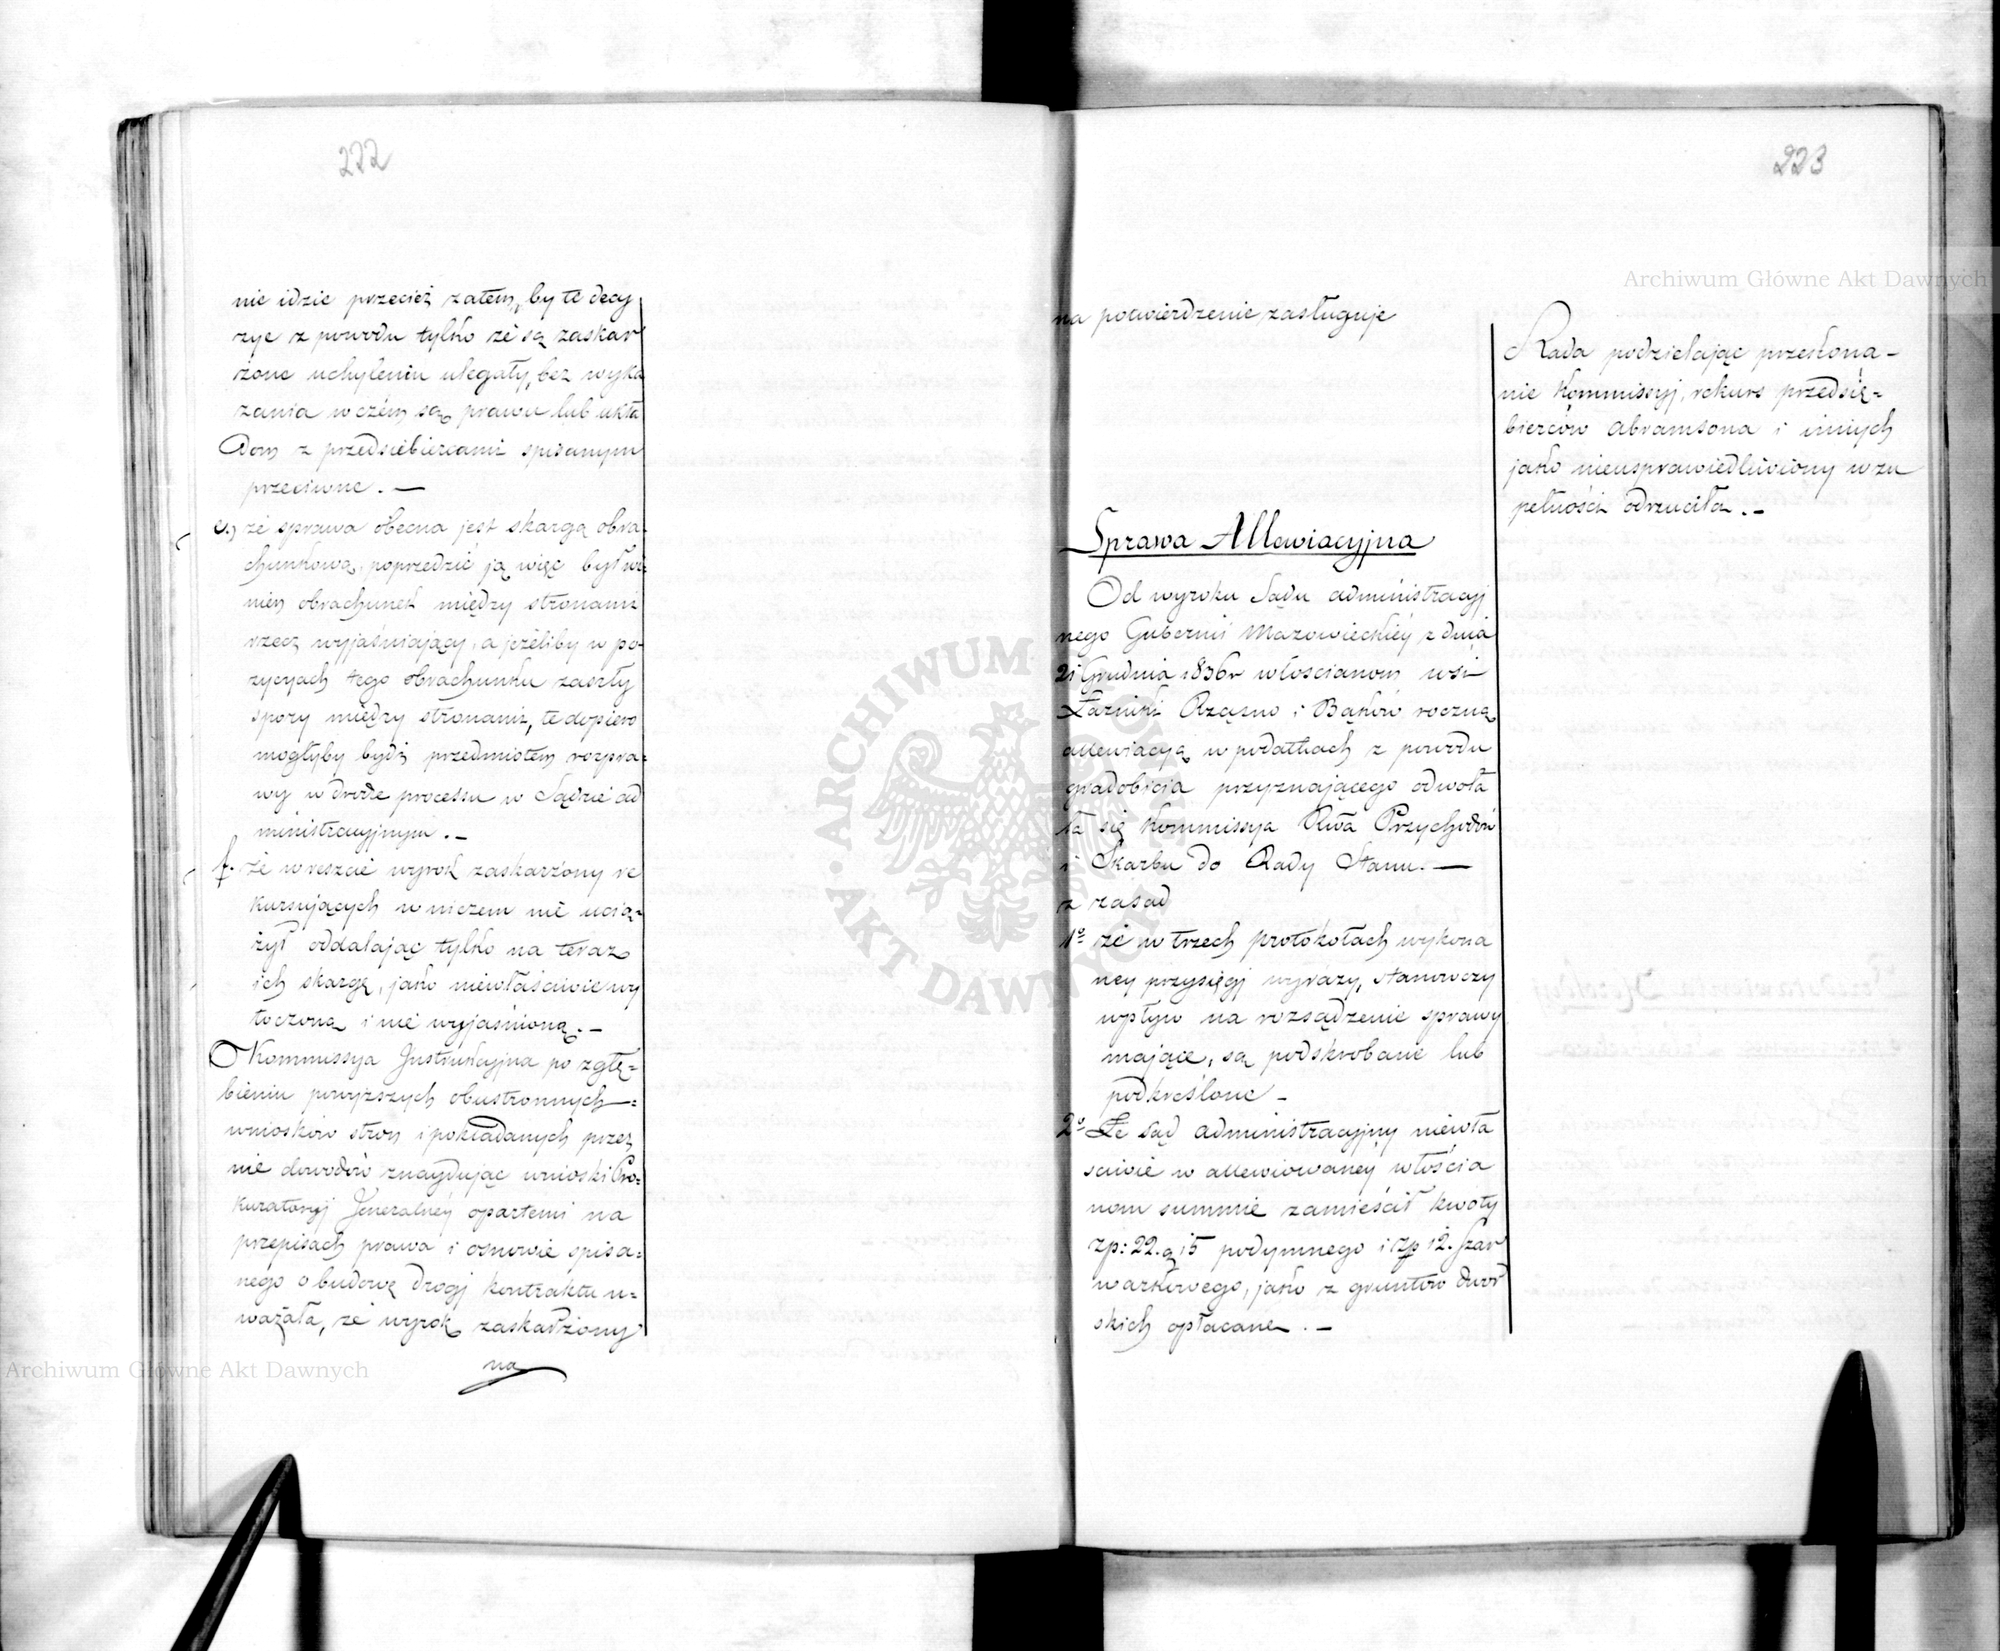 222
nie idzie przecież zatem, by te decy
zye z powodu tylko że są zaskar
żone uchyleniu ulegały, bez wyka
zania w czém są prawu lub ukła
dom z przedsiebiercami spisanym
przeciwne. —
e.) że sprawa obecna jest skargą obra-
chunkową, poprzedzić ją więc był wi-
nien obrachunek między stronami
rzecz wyjaśniający, a jeżeliby w po-
zycyach tego obrachunku zaszły
spory między stronami, te dopiero
mogłyby bydź przedmiotem rozpra-
wy w drodze processu w Sądzie ad
ministracyjnym. —
f. że wreszcie wyrok zaskarżony re
kursujących w niczem nie uciąż-
żył oddalając tylko na teraz
ich skargę, jako niewłaściwie wy
toczoną i nie wyjaśnioną. —
Kommissya Instrukcyjna po zgłę-
bieniu powyższych obustronnych
wniosków stron i pokładanych przez
nie dowodów znaydując wnioski Pro-
kuratoryj Jeneralnéy opartemi na
przepisach prawa i osnowie spisa-
nego o budowę drogi kontraktu u-
ważała, że wyrok zaskarżony
na
223
na potwierdzenie zasługuje
Rada podzielając przekona-
nie Kommissyj, rekurs przedsię-
bierców Abramsona i innych
jako nieusprawiedliwiony w zu
pełności odrzuciła. —
Sprawa Allewiacyjna
Od wyroku Sądu administracyj
nego Gubernii Mazowieckiéy z dnia
21 Grudnia 1836 r włoscianom wsi
Rząsno i Bąków roczną
allewiacyą w podatkach z powodu
gradobicia przyznającego odwoła
ła się Kommissya Rwa Przychodów
i Skarbu do Rady Stanu. —
z zasad
1º że w trzech protokołach wykona
ney przysięgi wyrazy, stanowczy
wpływ na rozsądzenie sprawy
mające, są podskrobane lub
podkreślone —
2º Że Sąd administracyjny niewła
sciwie w allewiowanéy włościa
nom summie zamieścił kwoty
zp: 22. g 15 podymnego i zp 12. szar
warkowego, jako z gruntów dwor
skich opłacane. —
Archiwum Główne Akt Dawnych
Archiwum Główne Akt Dawnych
ARCHIWUM GŁÓWNE · AKT DAWNYCH ·